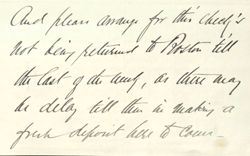 And please arrange for this check's
not being returned to Boston 'till
the last of the week, as there may
be delay till then in making a
fresh deposit here to cover